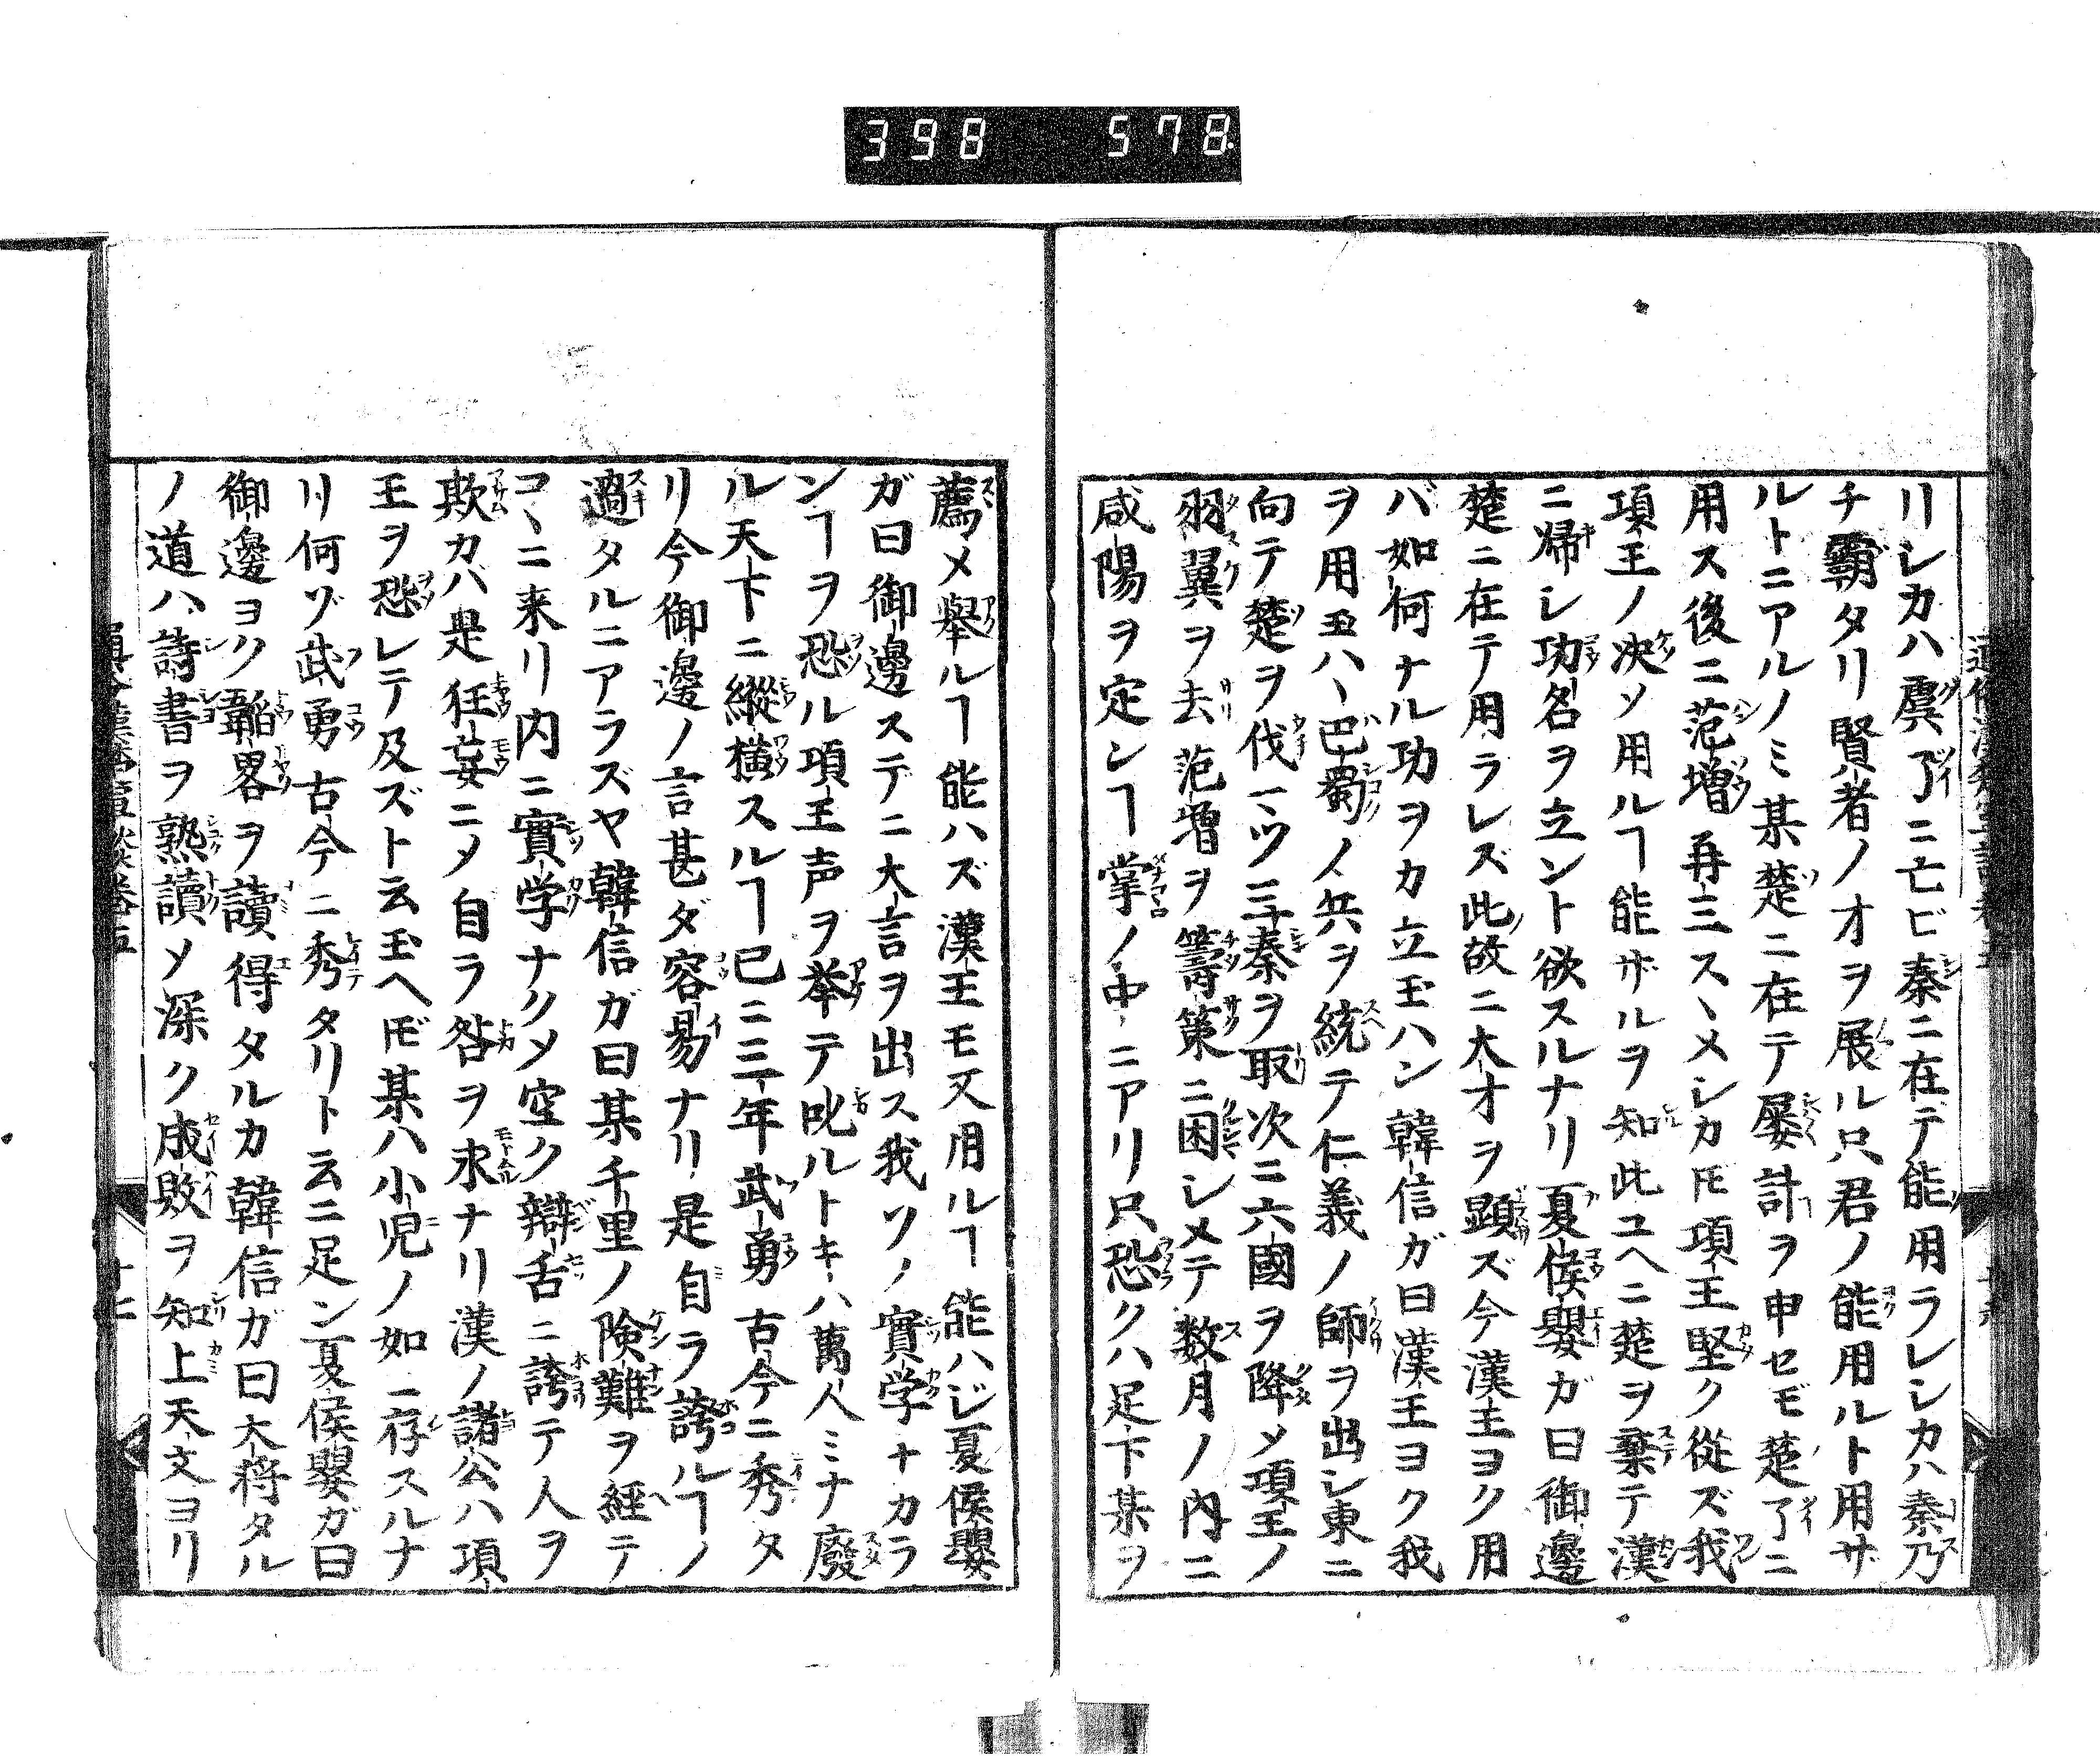 398 578
リシカハ虞了ニ亡ビ秦ニ在テ能用ラレシカハ秦乃
チ霸タリ賢者ノオヲ展ル只君ノ能用ルト用ザ
ルトニアルノミ某楚ニ在テ屡計ヲ申セモ楚了ニ
用ス後ニ范増再三スヽメシカ𪜈項王堅ク從ズ我
項王ノ决ソ用ルヿ能ザルヲ知此ユヘニ楚ヲ棄テ漢
ニ帰シ功名ヲ立ント欲スルナリ夏侯嬰ガ曰御邊
楚ニ在テ用ラレズ此故ニ大オヲ顕ズ今漢王ヨク用
バ如何ナル功ヲカ立玉ハン韓信ガ曰漢王ヨク我
ヲ用玉ハヽ巴蜀ノ兵ヲ統テ仁義ノ師ヲ出シ東ニ
向テ楚ヲ伐一ツ三秦ヲ取次ニ六國ヲ降メ項王ノ
羽翼ヲ去范増ヲ籌策ニ困シメテ数月ノ内ニ
咸陽ヲ定ンヿ掌ノ中ニアリ只恐クハ足下某ヲ
薦メ舉ルヿ能ハズ漢王モ又用ルヿ能ハジ夏侯嬰
ガ曰御邊ステニ大言ヲ出ス我ソノ實学ナカラ
ンヿヲ恐ル項王声ヲ挙テ叱ルトキハ萬人ミナ廢
ル天下ニ縱横スルヿ已ニ三年武勇古今ニ秀タ
リ今御邊ノ言甚ダ容易ナリ是自ラ誇ルヿノ
過タルニアラズヤ韓信ガ曰某千里ノ険難ヲ經テ
コヽニ来リ内ニ實学ナクメ空ク辯舌ニ誇テ人ヲ
欺カハ是狂妄ニメ自ラ咎ヲ求ナリ漢ノ諸公ハ項
王ヲ恐レテ及ズト云玉ヘ𪜈某ハ小児ノ如ニ存スルナ
リ何ゾ武勇古今ニ秀タリト云ニ足ン夏侯嬰ガ曰
御邊ヨク韜畧ヲ讀得タルカ韓信ガ曰大将タル
ノ道ハ詩書ヲ熟讀メ深ク成敗ヲ知上天文ヨリ
十二